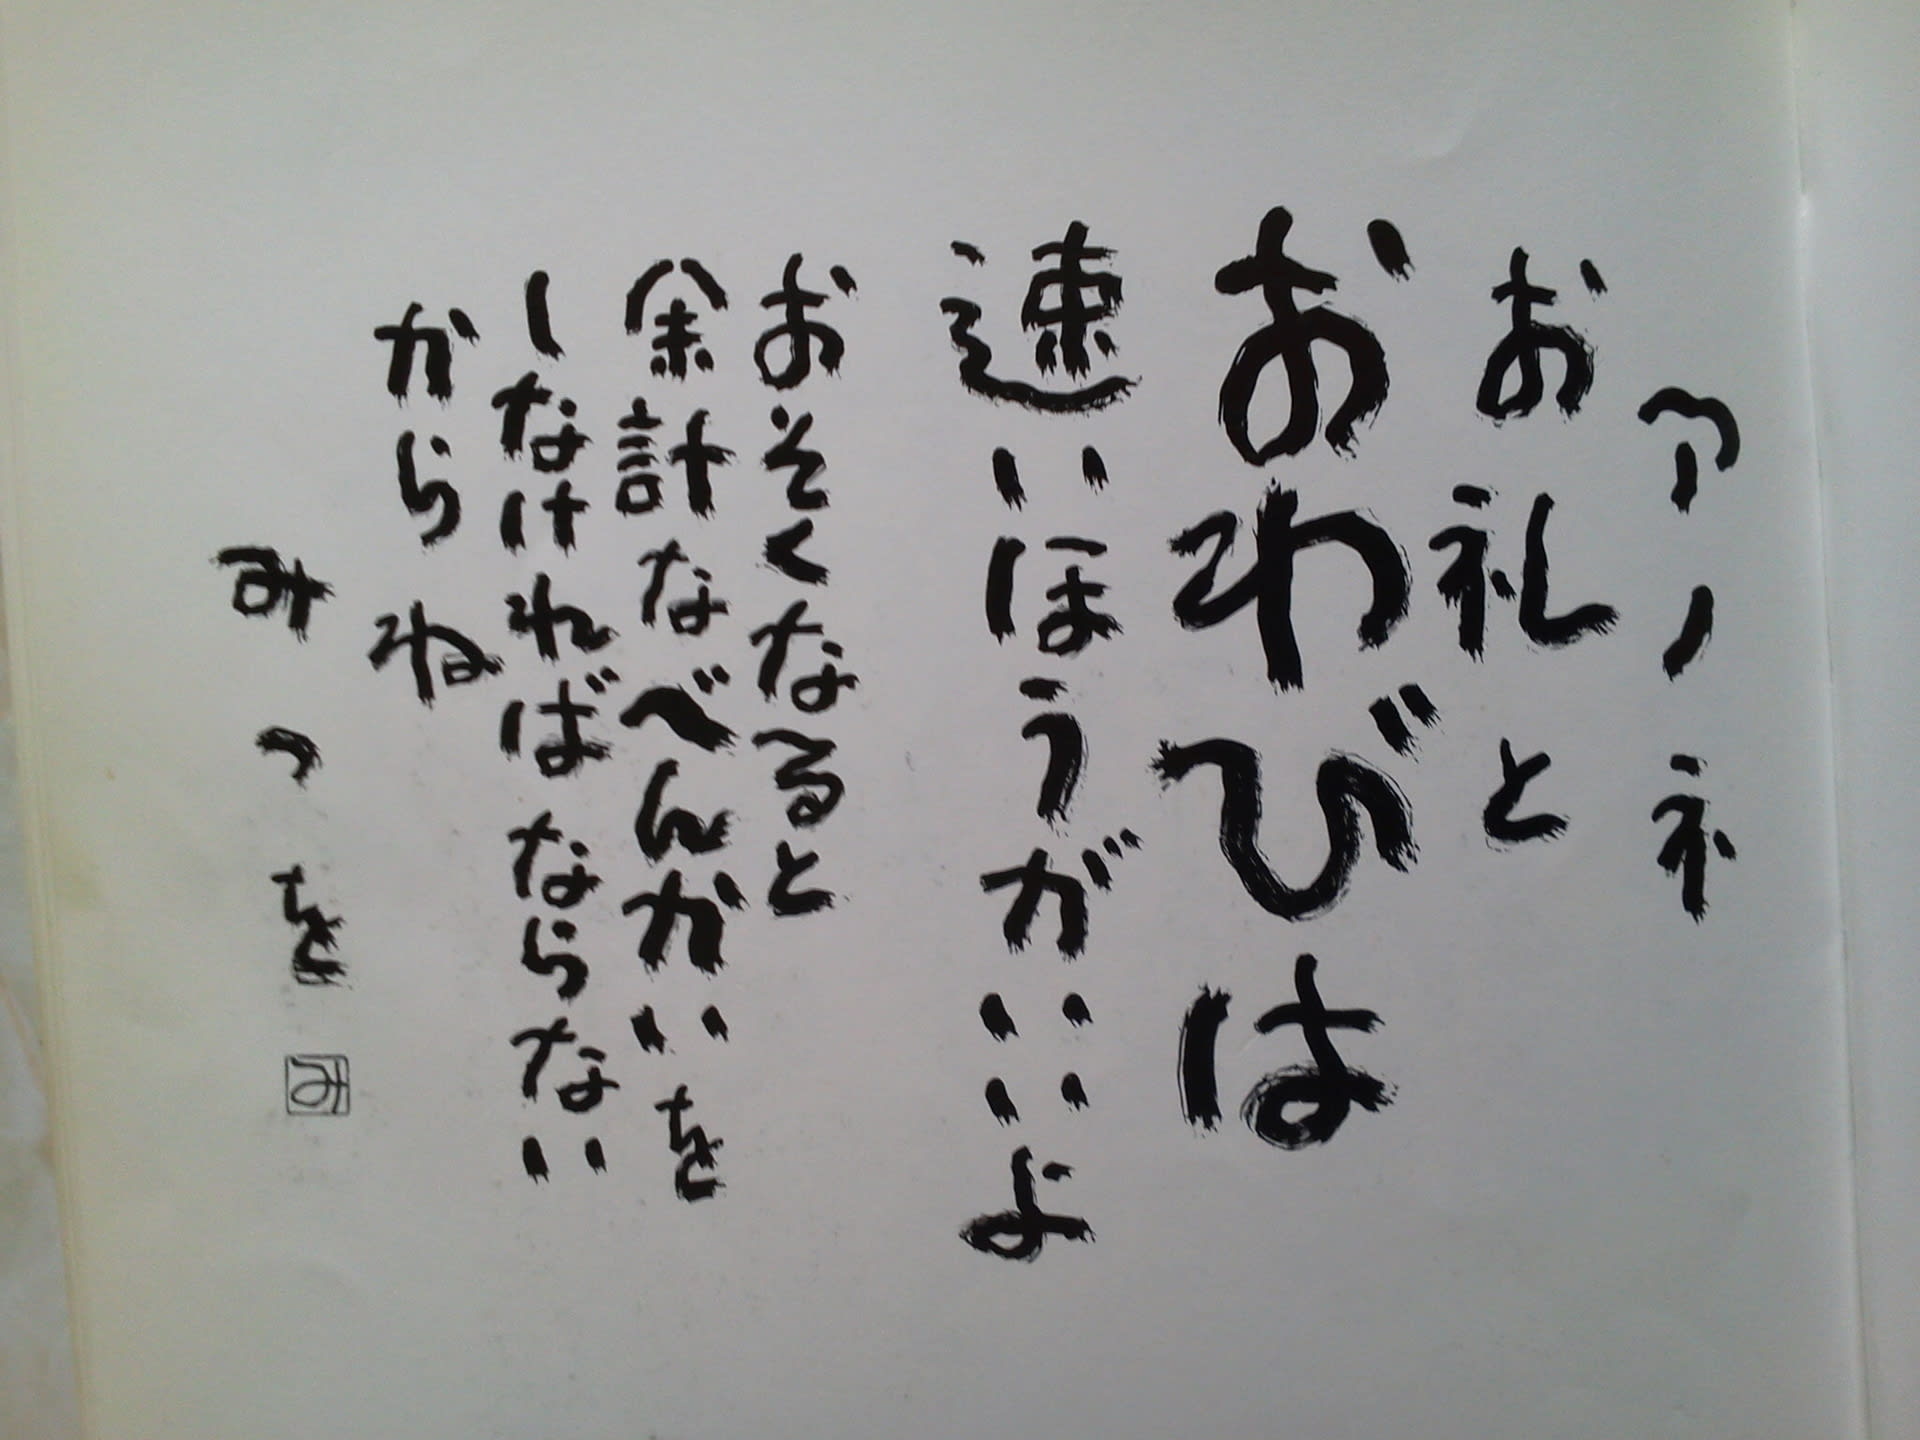 アノネ
お礼と
おわびは
速いほうがいいよ
おそくなると
余計なべんかいを
しなければならない
からね
みつを
み